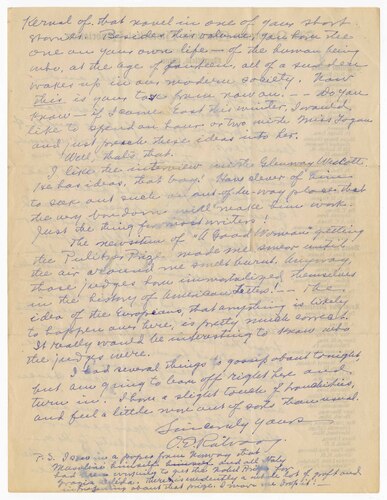 Kernal of that novel in one of your short
stories. Besides this volume, you have the
one on your own life — of the human being
who, at the age of fourteen, all of a sudden
wakes up in our modern society. Now
this is your task from now on. -- Do you
know — if I come East this winter, I would
like to spend an hour or two with Miss
and just these ideas into her.
Well, that's that.
I like the interview with Glenway Wescott.
He has ideas, that boy! How clever of him
to seek out such an out-of-the-way place that
the very boredom will make him work.
Just the thing for most writers!
The of "A Good Woman" getting
the Pulitzer Prize made me swear until
the air around me smelt burnt. Anyway
those judges have immortalized themselves
in the history of American letters! -- The
idea of the Europeans, that anything is likely
to happen over here, is pretty much correct.
It really would be interesting to know who
the judges were.
I had several things to gossip about tonight
but am going to leave off right here and
turn in. I have a slight touch of
and feel a little more out of sorts than usual.
Sincerely yours
O. E. Rölvaag
P.S. I see in a paper from Norway that
Mussolini and all Italy
are working to get the Nobel Prize for
Grazia Deledda. There's evidently a whole lot of graft and
about that prize. I move we